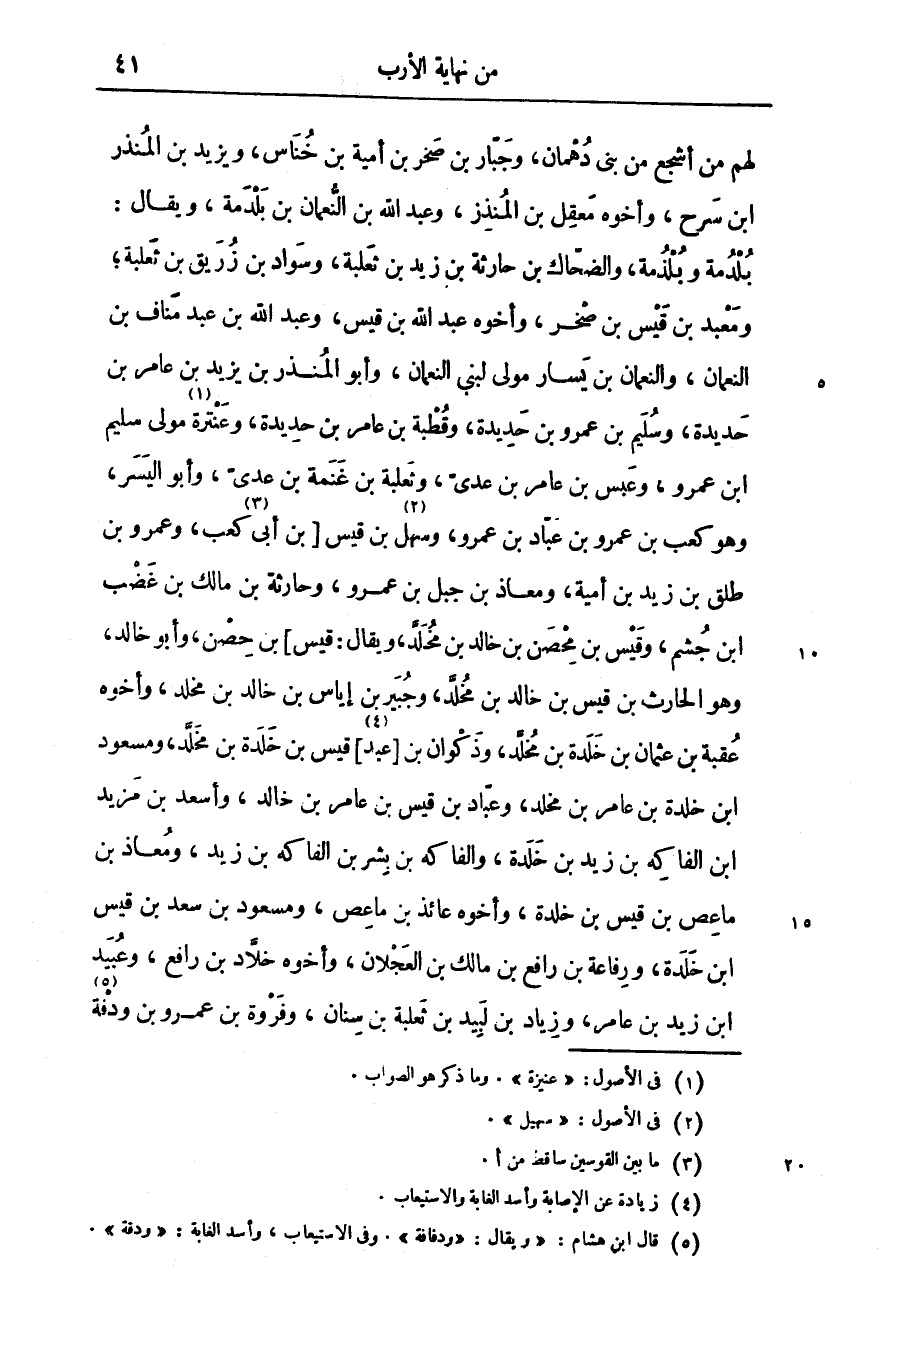 من نهاية الأرب ٤١
لهم من أشجع من بنى دُهْمان، وجَبّار بن صَخر بن أمية بن خُنَاس، ويزيد بن المُنذر
ابن سَرح ، وأخوه مَعقِل بن المُنذِر ، وعبد الله بن النُّعمان بن بَلْدَمة ، ويقال :
بُلْدُمة وبُلْذُمة، والضحّاك بن حارثة بن زيد بن ثعلبة، وسَواد بن زُرَيق بن ثَعلبة؛
ومَعْبد بن قَيْس بن صْخر ، وأخوه عبد الله بن قيس، وعبد الله بن عبد مَناف بن
النعمان ، والنعمان بن يَسار مولى لبني النعمان ، وأبو المُنذر بن يزيد بن عامر بن ٥
حَديدة، وسُلَيم بن عمرو بن حَدِيدة، وقُطْبة بن عامر بن حديدة، وعَنْترة (١) مولى سليم
ابن عمرو ، وعَبس بن عامر بن عدىّ ، وثَعلبة بن غَنَمة بن عدىّ ، وأبو اليَسَر،
وهو كعب بن عمرو بن عَبّاد بن عمرو، وسهل (٢) بن قيس [ بن أبى (٣) كعب، وعمرو بن
طلق بن زيد بن أمية، ومعاذ بن جبل بن عمرو ، وحارثة بن مالك بن غَضْب
ابن جُشم ، وقَيْس بن مِحْصَن بن خالد بن مُخَلَّد، ويقال : قيس] بن حِصْن، وأبو خالد، ١٠
وهو الحارث بن قيس بن خالد بن مُخَلَّد، وجُبَير بن إياس بن خالد بن مخلد ، وأخوه
عُقبة بن عثمان بن خَلَدة بن مُخَلَّد، وذَكْوان بن [عبد] (٤) قيس بن خَلَدة بن مُخَلَّد، ومسعود
ابن خلدة بن عامر بن مخلد، وعبّاد بن قيس بن عامر بن خالد ، وأسعد بن مَزيد
ابن الفاكه بن زيد بن خَلَدة ، والفاكه بن بِشر بن الفاكه بن زيد ، ومُعاذ بن
ماعِص بن قيس بن خلدة ، وأخوه عائذ بن ماعِص ، ومسعود بن سعد بن قيس ١٥
ابن خَلَدة، ورِفاعة بن رافع بن مالك بن العَجْلان ، وأخوه خلَّاد بن رافع ، وعُبَيد
ابن زيد بن عامر، وزِياد بن لَبِيد بن ثَعلبة بن سِنان ، وفَرْوة بن عمرو بن ودْفة (٥)
(١) فى الأصول: « عنيزة » . وما ذكر هو الصواب .
(٢) فى الأصول : « سهيل » .
(٣) ما بين القوسين ساقط من أ . ٢٠
(٤) زيادة عن الإصابة وأسد الغابة والاستيعاب .
(٥) قال ابن هشام : « ويقال : «ودفافة» . وفى الاستيعاب ، وأسد الغابة : « ودقة » .